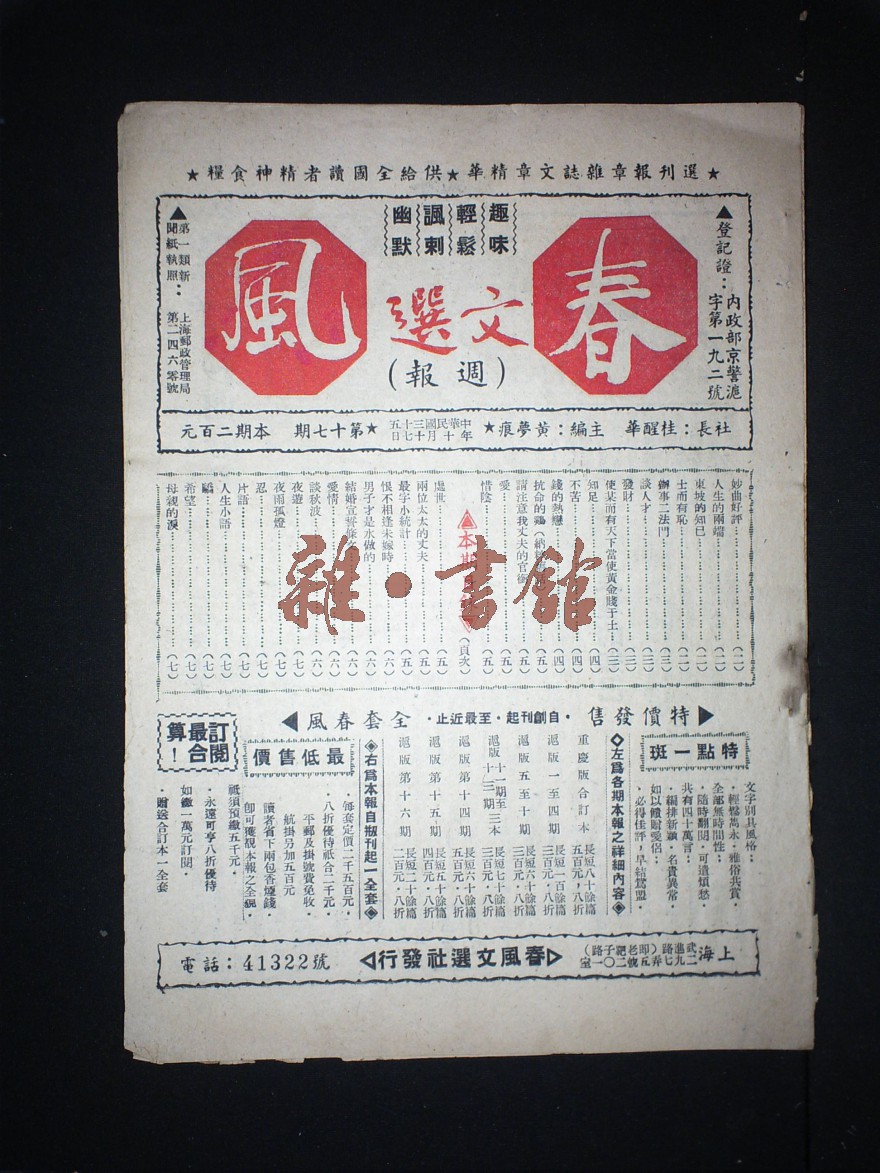 ★選刊報章雜誌文章精華★供給全國讀者精神食糧★
▲登記證：內政部京警滬字第一九二號
春風
文選
（週報）
趣味
輕鬆
諷刺
幽默
▲第一類新聞紙執照：上海郵政管理局・第二四六零號
社長：桂醒華　主編：黃夢痕★中華民國三十五年十月十七日★第十七期　本期二百元
妙曲好評（二）
人生的兩端（二）
東坡的知已（二）
士而有恥（二）
辦事二法門（三）
談人才（三）
發財（三）
使某而有天下當使黃金賤于土（三）
知足（四）
不苦（四）
錢的熱戀（四）
抗命的鷄（五）
請注意我丈夫的官銜（五）
愛（五）
惜陰（五）
▲本期（頁次）
處世（五）
兩位太太的丈夫（五）
最字小統計（五）
恨不相逢未嫁時（六）
男子才是水做的（六）
結婚宣誓條文（六）
愛情（六）
談秋波（六）
夜遊（七）
夜雨孤燈（七）
忍（七）
片語（七）
人生小語（七）
驕（七）
希望（七）
母親的淚（七）
雜・書館
▶特價發售・自創刊起・至最近止・全套春風◀
特點一斑
文字別具風格：
・輕鬆雋永・雅俗共賞・
全部無時間性：
・隨時翻閱・可遺煩愁・
共有四十萬言：
・編排新穎・名貴異常・
如以餽贈愛侶：
・必得佳評・早結鴛盟・
◈左為各期本報之詳細內容◈
重慶版合訂本　長短八十餘篇　五百元・八折
滬版一至四期　長短一百餘篇　三百元・八折
滬版五至十期　長短二十餘篇　三百元・八折
滬版十一期至十三期　三本　長短七十餘篇　三百元・八折
滬版第十四期　長短六十餘篇　五百元・八折
滬版第十五期　長短五十餘篇　四百元・八折
滬版第十六期　長短二十餘篇　二百元・八折
◈右為本報自創刊起一全套◈
最低售價
・每套定價二千五百元・
・八折優待祇合二千元・
平郵及掛號費免收・
航掛另加五百元
讀者省下兩包香煙錢・
卽可獲觀本報之全貌・
訂閱最合算！
祇須預繳五千元・
・永遠可享八折優待
如繳一萬元訂閱・
・贈送合訂本一全套
上海武進路二九七弄（卽老靶子路）五號二〇一室
▷春風文選社發行◁
電話：41322號